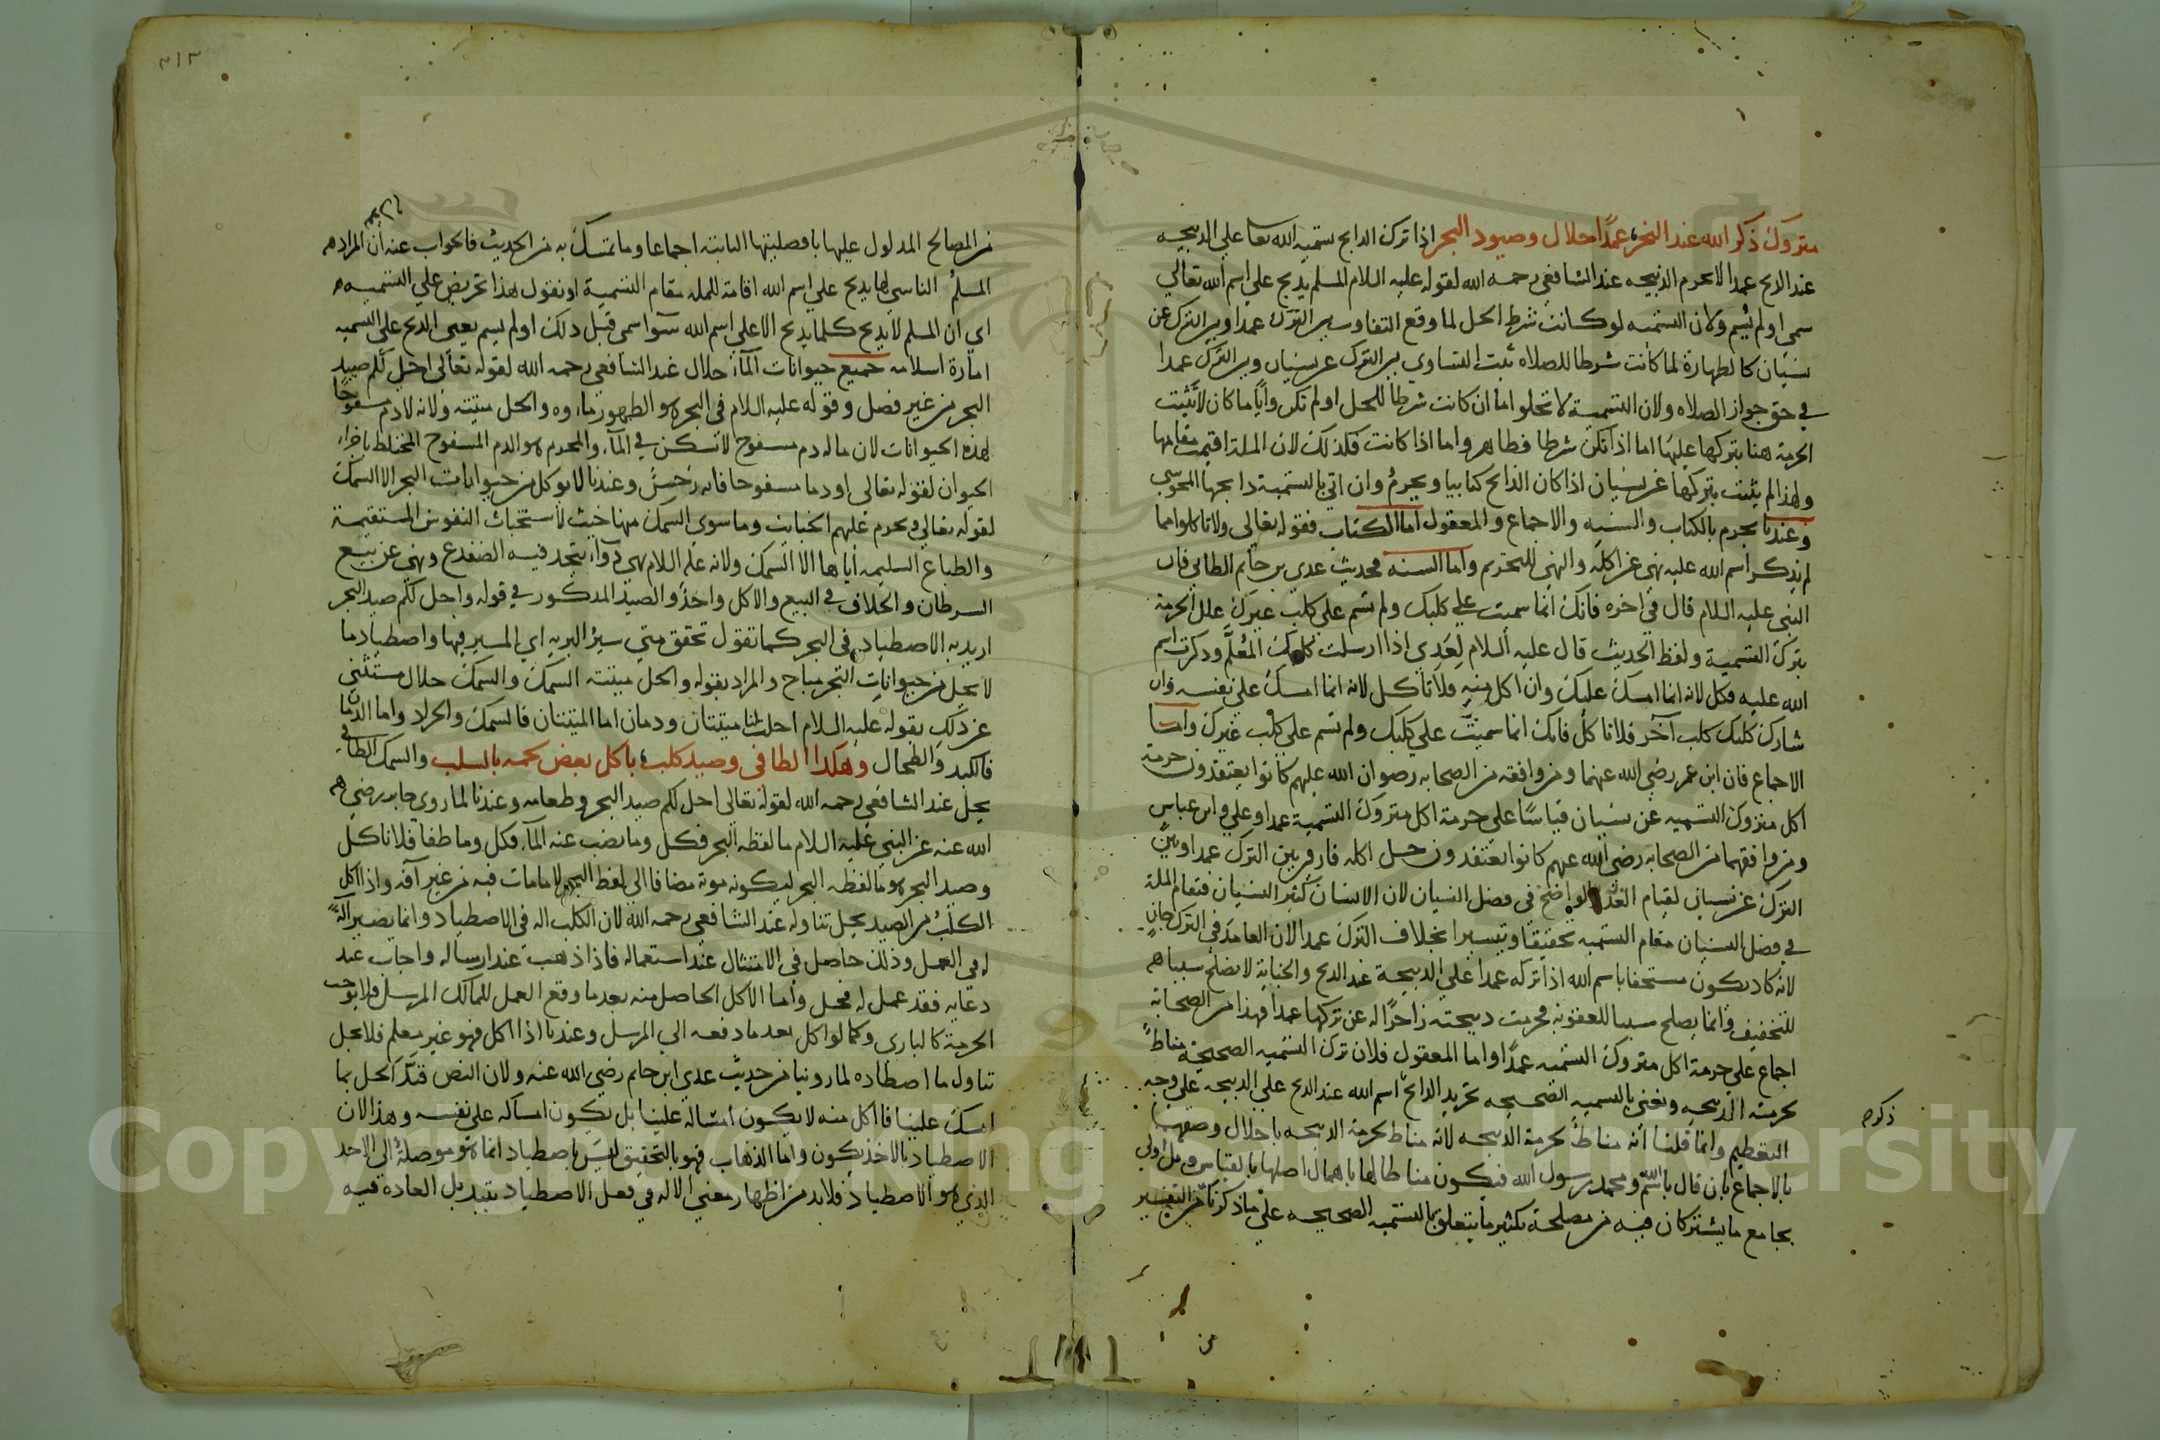 متروك ذكر الله عند النحر عمدًا حلال وصيود البحر اذا ترك الذابح تسمية الله تعا علي الذبيحه
عند الذبح عمدا لا تحرم الذبيحه عند الشافعي رحمه الله لقوله عليه السلام المسلم يذبح علي اسم الله تعالي
سمي او لم يُسم ولان التسميه لو كانت شرط الحل لما وقع التفاوت بين الترك عمدا وبين الترك عن
نسيان كالطهارة لما كانت شرطا للصلاه ثبت التساوي بين الترك عن نسيان وبين الترك عمدا
في حق جواز الصلاه ولان التسمية لا تخلوا اما ان كانت شرطا للحل او لم تكن وأيًا ما كان لا تثبت
الحرمة هنا بتركها عليها اما اذا لم تكن شرطا فظاهر واما اذا كانت فكذلك لان الملة اقيمت مقامها
ولهذا لم يثبت بتركها عن نسيان اذا كان الذابح كتابيا ويحرمُ وان اتي بالتسمية ذابحها المجوسي
وعندنا يحرم بالكتاب والسنه والاجماع والمعقول اما الكتاب فقوله تعالي ولا تاكلوا مما
لم يذكر اسم الله عليه نهي عن اكله والنهي للتحريم واما السنه فحديث عدي بن حاتم الطائي فان
النبي عليه السلام قال في اخره فانك انما سميت علي كلبك ولم تسم علي كلب غيرك علل الحرمة
بترك التسمية ولفظ الحديث قال عليه السلام لعَدِي اذا ارسلت كلبك المُعلَّم وذكرت اسم
الله عليه فكل لانه انما امسك عليك وان اكل منه فلا تاكل لانه انما امسك علي نفسه وان
شارك كلبك كلب آخر فلا تاكل فانك انما سميت علي كلبك ولم تسم علي كلب غيرك واما
الاجماع فان ابن عمر رضي الله عنهما ومن وافقه من الصحابه رضوان الله عليهم كانوا يعتقدون حرمة
اكل متروك التسميه عن نسيان قياسًا علي حرمة اكل متروك التسمية عمدا وعلي وابن عباس
ومن وافقهما من الصحابه رضي الله عنهم كانوا يعتقدون حل اكله فارقين بين الترك عمدا وبين
الترك عن نسيان لقيام العذر الواضح في فصل النسيان لان الانسان كثير النسيان فتقام الملة
في فصل النسيان مقام التسميه تحقيقا وتيسيرا بخلاف الترك عمدا لان العامد في الترك جانٍ
لانه كاد يكون مستخفا باسم الله اذا تركه عمدا علي الذبيحة عند الذبح والجناية لا يصلح سببا
للتخفيف وانما يصلح سببا للعقوبه فحرمت ذبيحته زاجرًا له عن تركها عمدا فهذا من الصحابة
اجماع علي حرمة اكل متروك التسميه عمدًا واما المعقول فلان ترك التسميه الصحيحة مناطً
لحرمة الذبيحه ونعني بالتسميه الصحيحه تجريد الذابح اسم الله عند الذبح علي الذبيحه علي وجه
التعظيم وانما قلنا انه مناطً لحرمة الذبيحه لانه مناط لحرمة الذبيحه باخلال وصفها
ذكره
بالاجماع بان قال باسم الله ومحمد رسول الله فيكون مناطا لها باهمال اصلها بالقياس
بجامع ما يشتركان فيه من مصلحة تكثير ما يتعلق بالتسميه الصحيحه علي ما ذكرنا من التفسير
٣١٣
من المصالح المدلول عليها بافضليتها الثابتة اجماعا وما تمسك به من الحديث فالجواب عنه أن المراد
المسلمُ الناسي لها يذبح علي اسم الله اقامة للملة مقام التسمية او نقول هذا تحريض علي التسميه
اي ان المسلم لا يذبح كلما يذبح الا علي اسم الله سوا سمي قبل ذلك او لم يسم يعني الذبح علي التسميه
امارة اسلامه جميع حيوانات الماء حلال عند الشافعي رحمه الله لقوله تعالي احل لكم صيد
البحر من غير فصل وقوله عليه السلام في البحر هو الطهور ماءوه والحل ميتته ولانه لا دم مسفوحا
لهذه الحيوانات لان ماله دم مسفوح لا تسكن في الماء والمحرم هو الدم المسفوح المختلط باجزاء
الحيوان لقوله تعالي او دما مسفوحا فانه رجسٌ وعندنا لا يوكل من حيوانات البحر الا السمك
لقوله تعالي ويحرم عليهم الخبايث وما سوي السمك منها خبث لاستخباث النفوس المستقيمة
والطباع السليمه اياها الا السمك ولانه عليه السلام نهي عن دواء يتخذ فيه الضفدع ونهي عن بيع
السرطان والخلاف في البيع والاكل واحدٌ والصيد المذكور في قوله واحل لكم صيد البحر
اريد به الاصطياد في البحر كما تقول تحقق متي سيرُ البريه اي المسير فيها واصطياد ما
لا يحل من حيوانات البحر مباح والمراد بقوله والحل ميتته السمك والسمك حلال مستثني
عن ذلك بقوله عليه السلام احلت لنا ميتتان ودمان اما الميتتان فالسمك والجراد واما الدمان
فالكبد والطحال وهكذا الطافي وصيد كلب؛ باكل بعض لحمه بالسلب والسمك الطافي
يحل عند الشافعي رحمه الله لقوله تعالي احل لكم صيد البحر وطعامه وعندنا لما روي جابر رضي
الله عنه عن النبي عليه السلام ما لفظه البحر فكل وما نضب عنه الماء فكل وما طفا فلا تاكل
وصيد البحر هو ما لفظه البحر ليكون موته مضافا الي لفظ البحر لا ما مات فيه من غير آفه واذا اكل
الكلبُ من الصيد يحل تناوله عند الشافعي رحمه الله لان الكلب اله في الاصطياد وانما يصير آلة
له في العمل وذلك حاصل في الامتثال عند استعماله فاذا ذهب عند ارساله واجاب عند
دعايه فقد عمل له فحل واما الاكل الحاصل منه بعد ما وقع العمل للمالك المرسل فلا يوجب
الحرمة كالبازي وكما لو اكل بعد ما دفعه الي المرسل وعندنا اذا اكل فهو غير معلم فلا يحل
تناول ما اصطاده لما روينا من حديث عدي ابن حاتم رضي الله عنه ولان النص قيَّد الحل بما
امسك علينا فما اكل منه لا يكون امساكه علينا بل يكون امساكه علي نفسه وهذا لان
الاصطياد بالاخذ يكون واما الذهاب فهو بالتحقيق ليس باصطياد انما هو موصلةٌ الي الاخذ
الذي هو الاصطياد فلا بد من اظهار معني الاله في فعل الاصطياد بتبديل العاده فيه
Copyright © King Saud University
1957